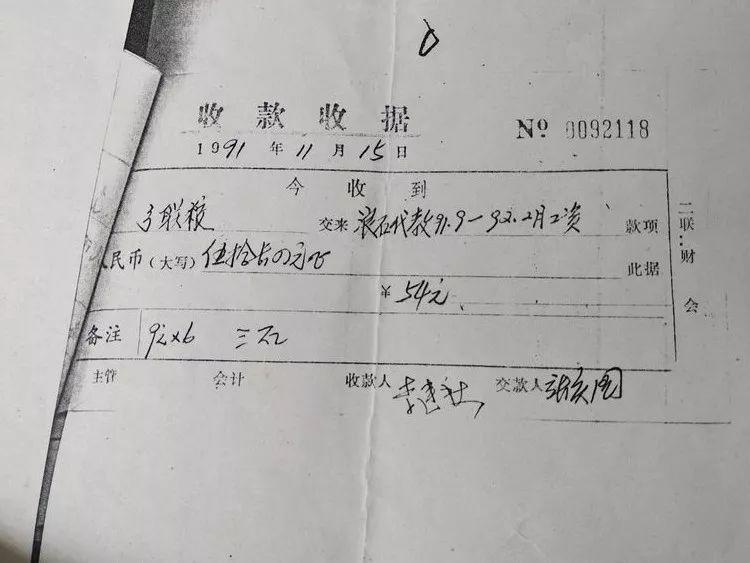 收款收据
Nº 0092118
1991年11月15日
今收到
联校 交来 滚石代教91.9-92.2月工资 款项
人民币（大写）伍拾 04元 此据
¥ 54元
备注 9元×6 三石
主管 会计 收款人 李建社 交款人 张庆国
二联:财会